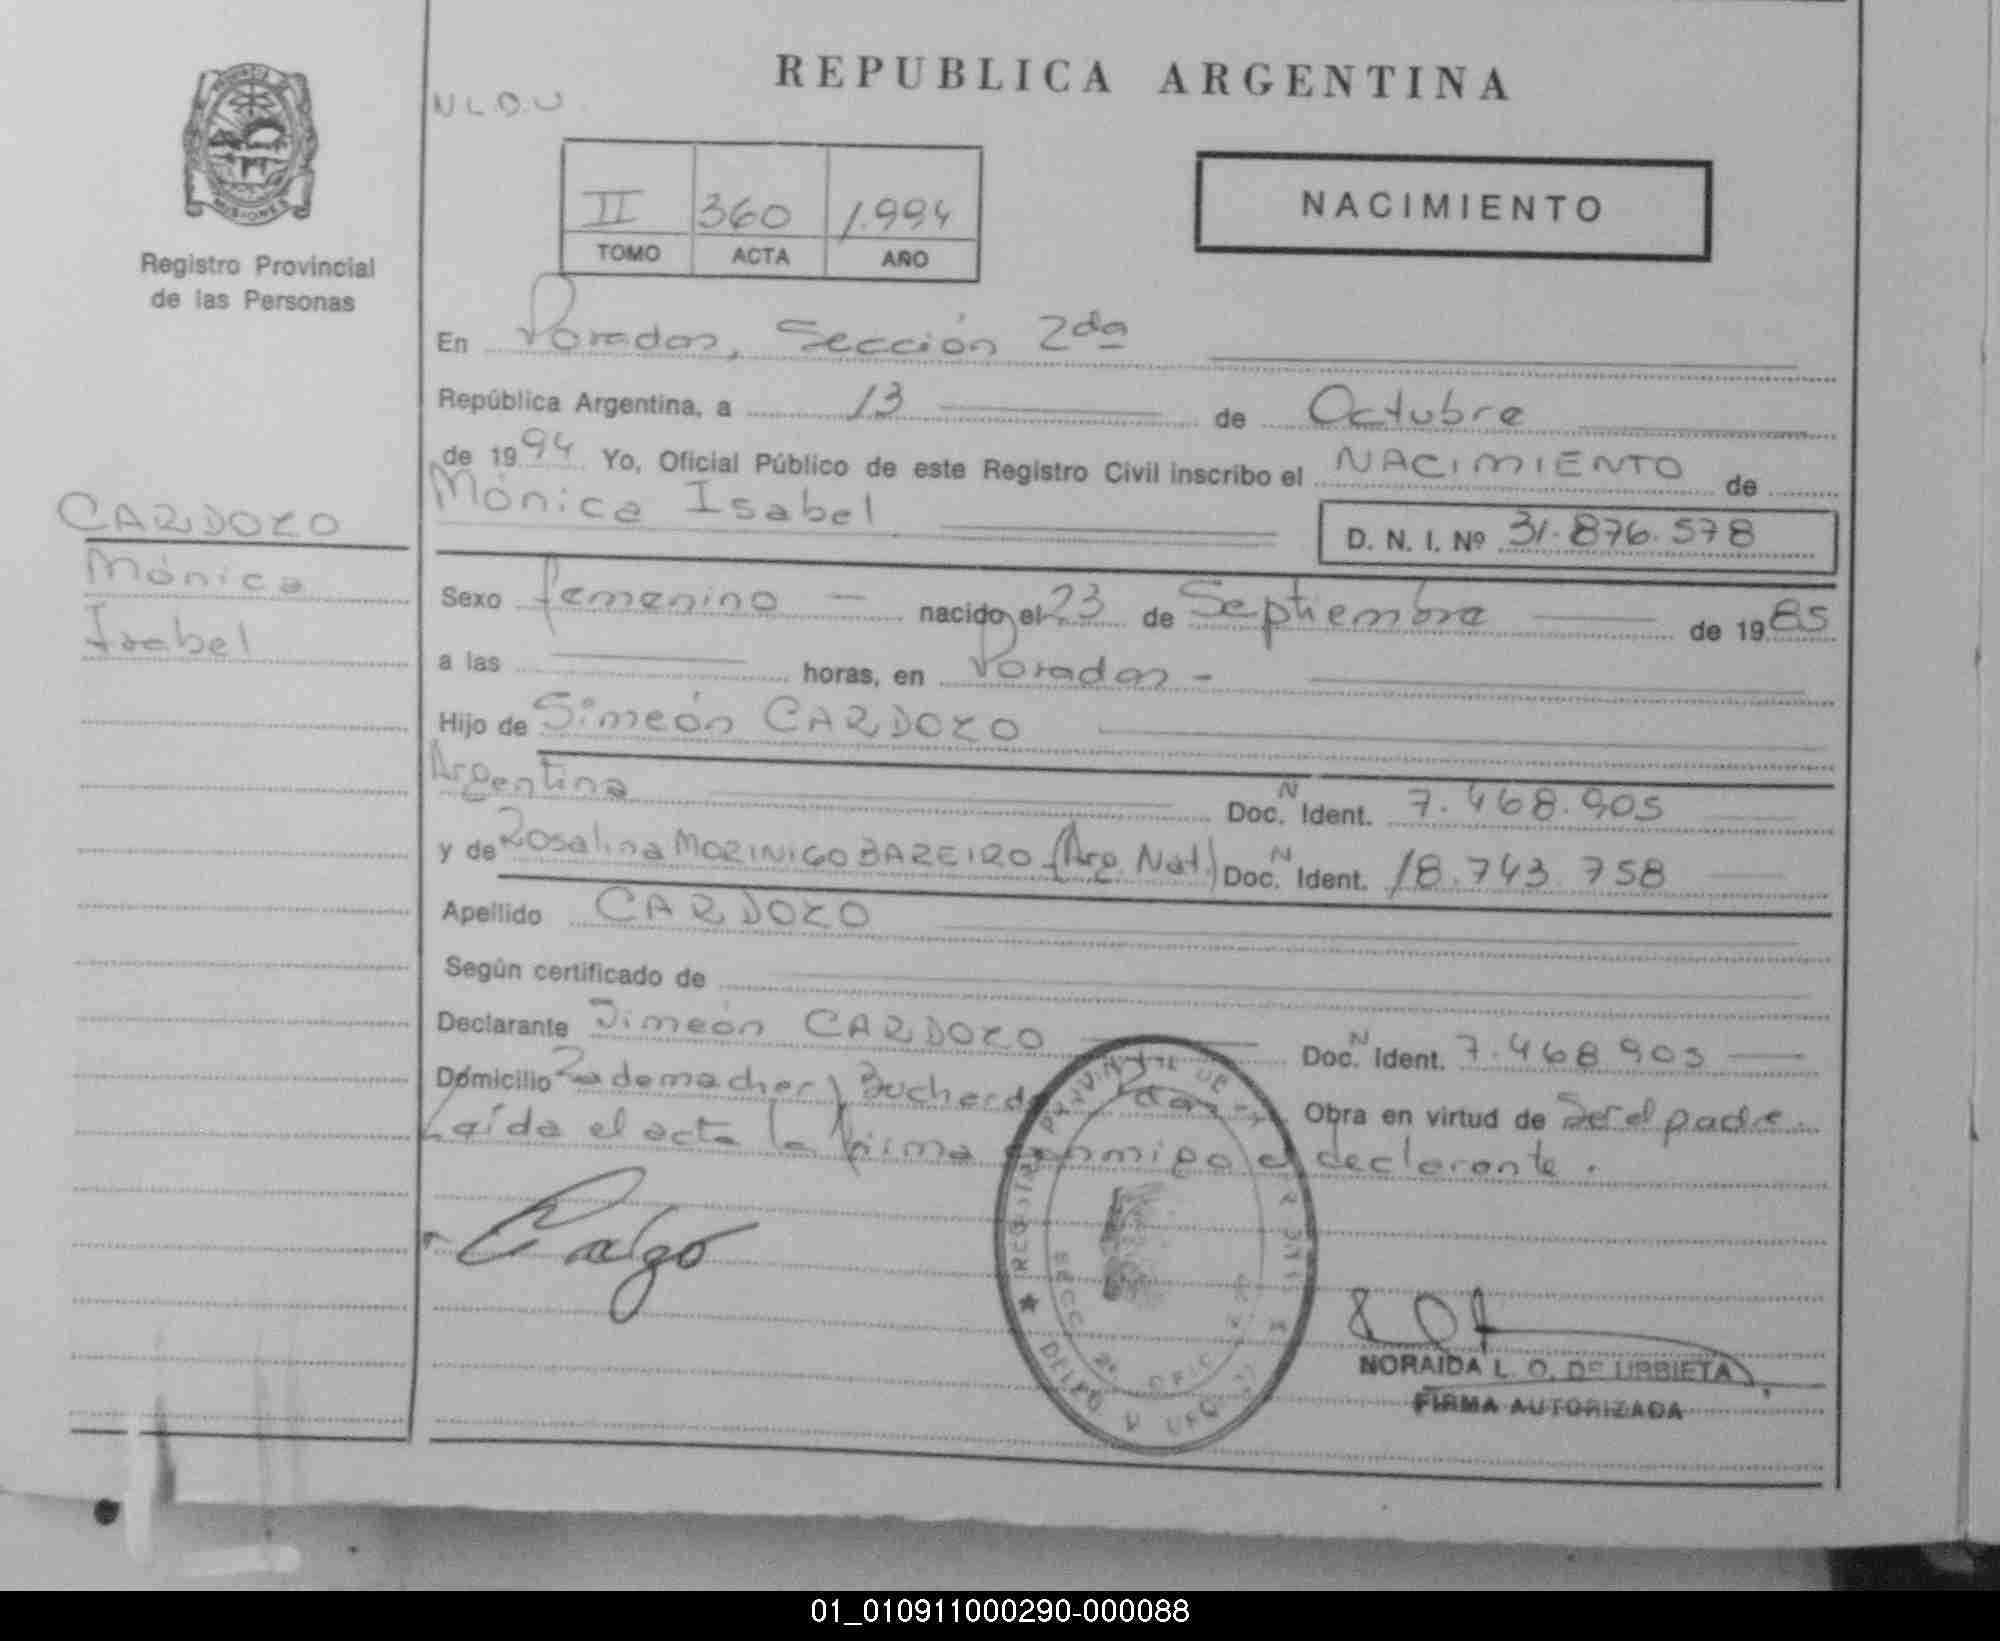 REPUBLICA ARGENTINA
N L D U
MISIONES
Registro Provincial
de las Personas
II 360 1.994
TOMO ACTA AÑO
NACIMIENTO
En Posadas, Sección 2da
República Argentina, a 13 de Octubre
de 1994 Yo, Oficial Público de este Registro Civil inscribo el NACIMIENTO de
Mónica Isabel
D. N. I. Nº 31.876.578
CARDOZO
Mónica
Isabel
Sexo femenino — nacido el 23 de Septiembre de 1985
a las horas, en Posadas -
Hijo de Simeón CARDOZO
Argentina Doc. N Ident. 7.468.905
y de Rosalina MORINIGO BAREIRO (Arg. Nat.) Doc. N Ident. 18.743.758
Apellido CARDOZO
Según certificado de
Declarante Simeón CARDOZO Doc. N Ident. 7.468.905
Domicilio Rademacher y Pdas - Obra en virtud de Ser el padre.
Laída el acta la firma conmigo el declarante.
SECC 2ª
NORAIDA L. O. DE URBIETA
FIRMA AUTORIZADA
01_010911000290-000088